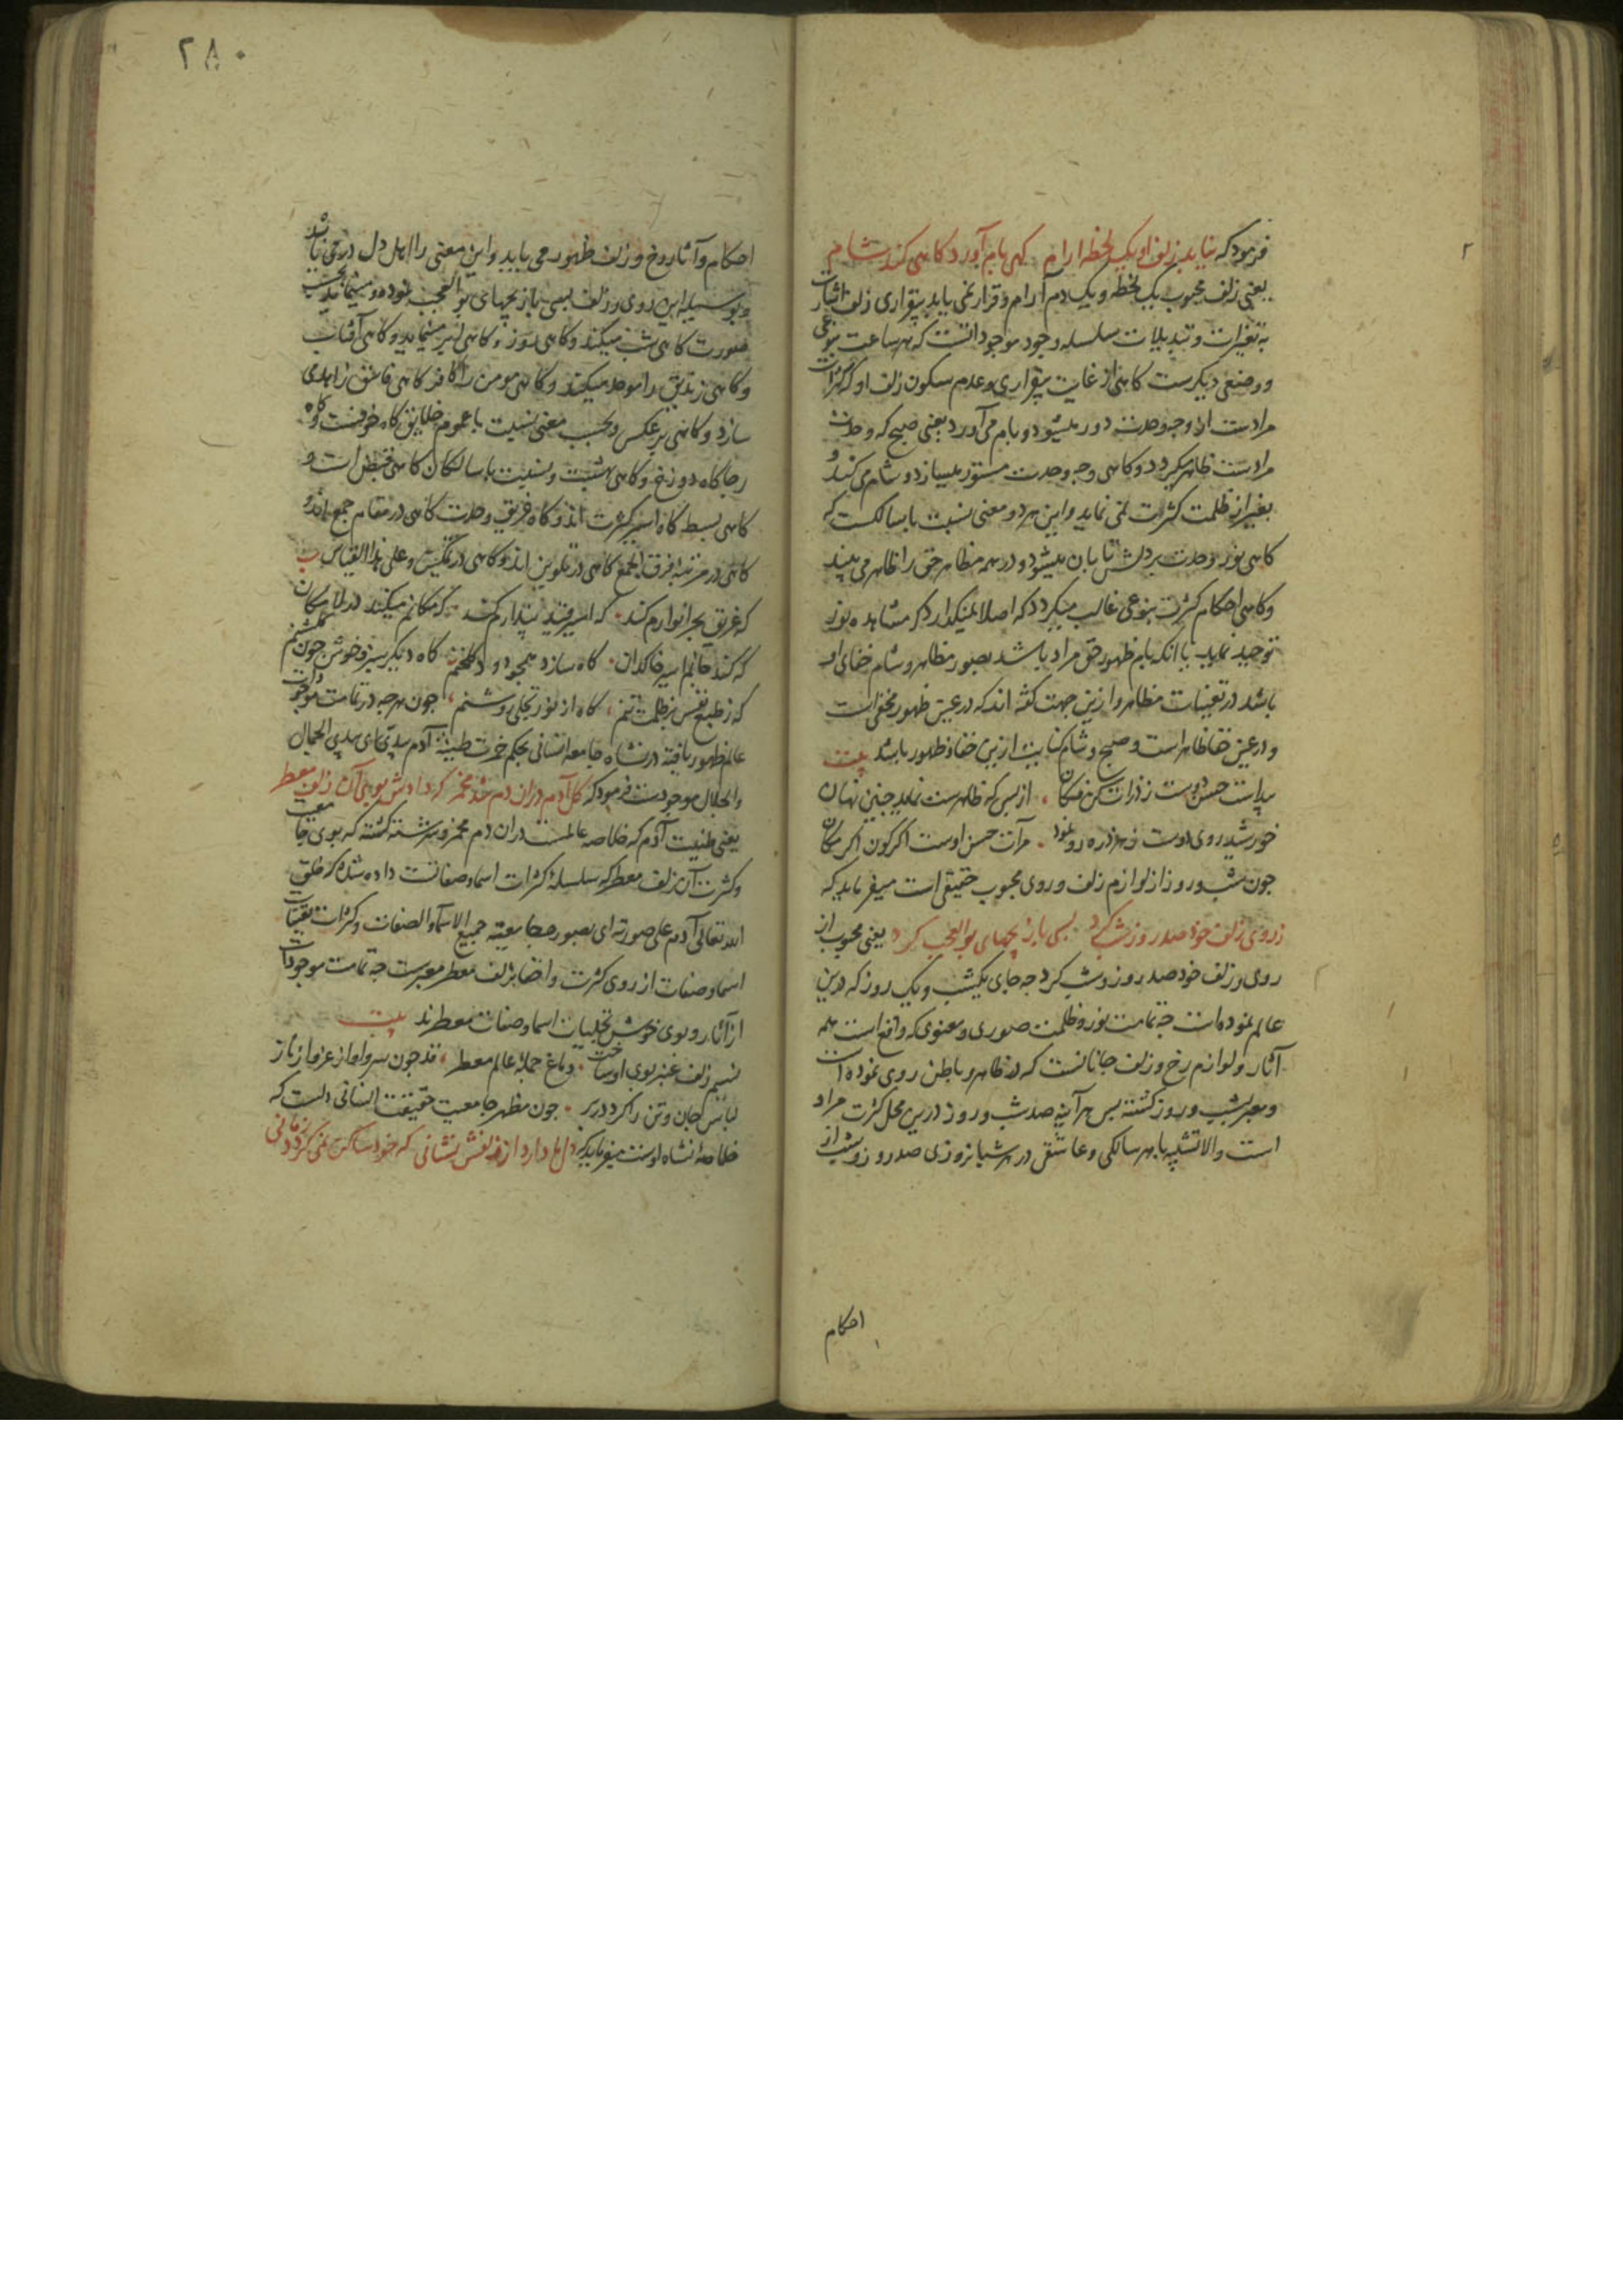 فرمود که نیابد زلف او یک لحظه ارام کهی بام آورد کاهی کند شام
یعنی زلف محبوب یک لحظه و یک دم آرام و قرار نمی یابد بیقراری زلف اشارت
به تغیرات و تبدیلات سلسله وجود موجوداتست که هر ساعت بنوعی
و وضعی دیکرست کاهی از غایت بیقراری و عدم سکون زلف او که کثرات
مرادست از وجه وحدت دور میشود و بام می آورد یعنی صبح که وحدت
مرادست ظاهر میکردد و کاهی وجه وحدت مستور میسازد و شام می کند و
بغیر از ظلمت کثرت نمی نماید و این هر دو معنی نسبت با سالکست که
کاهی نور وحدت بر دلش تابان میشود و در همه مظاهر حق را ظاهر می بیند
و کاهی احکام کثرت بنوعی غالب میکردد که اصلا نمیکذارد که مشاهده نور
توحید نماید یا انکه بام ظهور حق مراد باشد بصور مظاهر و شام خفای او
باشد در تعینات مظاهر و ازین جهت کفته اند که در عین ظهور مخفی است
و در عین خفا ظاهر است و صبح و شام کنایت ازین خفا و ظهور باشد بیت
پیداست حسن دوست ز ذرات کن فکان ازبس که ظاهرست نماید چنین نهان
خورشید روی دوست ز هر ذره رو نمود مرآت حسن اوست اکر کون اکر مکان
جون شب و روز از لوازم زلف و روی محبوب حقیقی است میفرماید که
ز روی زلف خود صد روز شب کرد بسی بازیچهای بوالعجب کرد یعنی محبوب از
روی و زلف خود صد روز و شب کرد جه جای یکشب و یک روز که درین
عالم نموده است جه تمامت نور و ظلمت صوری و معنوی که واقع است همه
آثار و لوازم رخ و زلف جانانست که در ظاهر و باطن روی نموده است
و معبر بشب و روز کشته پس هر آینه صد شب و روز درین محل کثرت مراد
است والا نسبه با هر سالکی و عاشقی در هر شبانروزی صد روز و شب از
احکام
۲۸۰
احکام و آثار رخ و زلف ظهور می یابد و این معنی را اهل دل در می یابند
و بوسیله این روی و زلف بسی بازیچهای بوالعجب نموده و مینماید بحسب
صورت کاهی شب میکند و کاهی روز و کاهی ابر مینماید و کاهی آفتاب
و کاهی زندیق را موحد میکند و کاهی مومن را کافر کاهی فاسق زاهدی
سازد و کاهی برعکس و بحسب معنی نسبت با عموم خلایق کاه خوفست و کاه
رجا کاه دوزخ و کاهی بهشت و نسبت با سالکان کاهی قبض است و
کاهی بسط کاه اسیر کثرت اند و کاه غریق وحدت کاهی در مقام جمع اند و
کاهی در مرتبه فرق الجمع کاهی در تلوین اند و کاهی در تمکین و علی هذا القیاس ب
که غریق بحر انوارم کند که اسیر قید پندارم کند که مکانم میکند در لامکان
که کند جانم اسیر خاکدان کاه سازد همچو دود کلخنم کاه دیکر سبز و خوش جون کلشنم
که ز طبع نفس بر ظلمت تنم کاه از نور تجلی روشنم جون هرجه در تمامت موجودات
عالم ظهور یافته در نشاه جامعه انسانی بحکم خمرت طینة آدم بیدی ای بیدی الجمال
والجلال موجودست فرمود که کل آدم در ان دم شد مخمر که دادش بوی آن زلف معطر
یعنی طینت آدم که خلاصه عالمست در ان دم مخمر و سرشته کشته که بوی جامعیت
و کثرت آن زلف معطر که سلسلهٔ کثرات اسما و صفاتست داده شد که خلق
الله تعالی آدم علی صورته ای بصورة جامعیة جمیع الاسماء و الصفات و کثرات تعینات
اسما و صفات از روی کثرت و اخفا بزلف معطر معبرست جه تمامت موجودات
از آثار و بوی خوش تجلیات اسما و صفات معطرند بیت
نسیم زلف عنبر بوی او ساخت دماغ جملهٔ عالم معطر قد جون سرو او از عز و از ناز
لباس جان و تن را کرد در بر جون مظهر جامعیت حقیقت انسانی دلست که
خلاصه انشاه اوست میفرماید که دل ما دارد از زلفش نشانی که خود ساکن نمی کردد زمانی